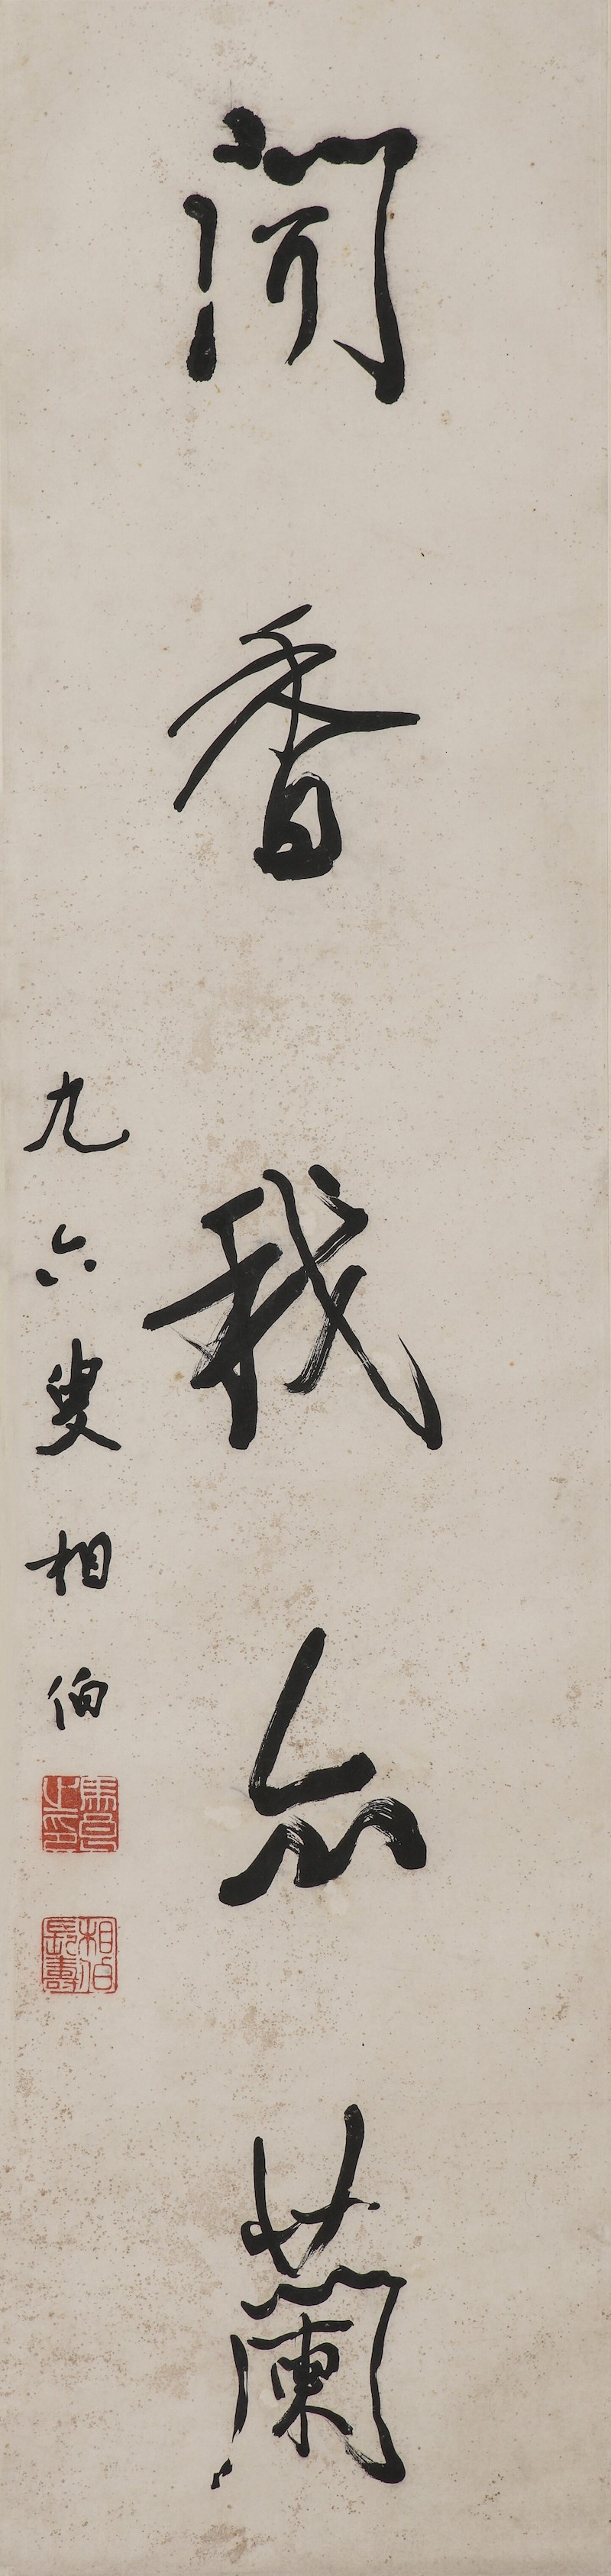 聞香我亦蘭
九六叟相伯
馬良之印
相伯長壽